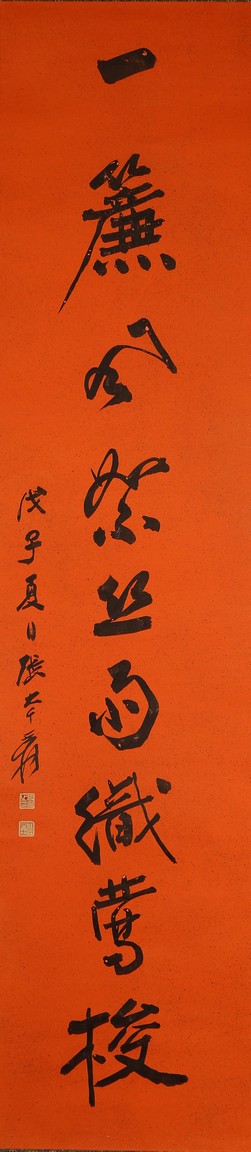 一簾風絮丝雨織鶯梭
戊子夏日張大千爰